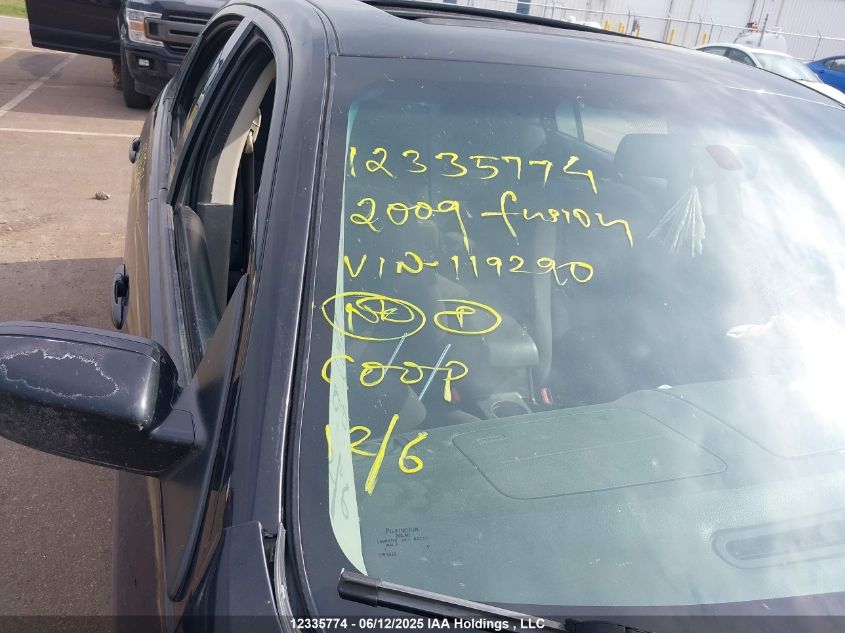 12335774
2009 fusion
VIN-119290
NK P
COOP
12/6
PILKINGTON
12335774 - 06/12/2025 IAA Holdings , LLC